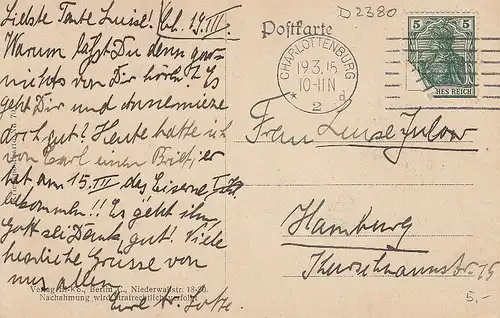 Liebste Tante Luise! Ch. 19.III.
Warum läßt Du denn gar
nichts von Dir hören? Es
geht Dir und Annemiere
doch gut? Heute hatte ich
von Carl einen Brief, er
hat am 15. III das Eiserne
bekommen!! Es geht ihm,
Gott sei Dank, gut! Viele
herzliche Grüsse von
uns allen
Lotte.
Berlin C., Niederwallstr. 18-20.
Nachahmung wird strafrechtlich verfolgt.
Postkarte
D2380
CHARLOTTENBURG
19.3.15
10-11N
* 2 d
5 5
HES REICH
Frau Luise Julow
Hamburg
5,-